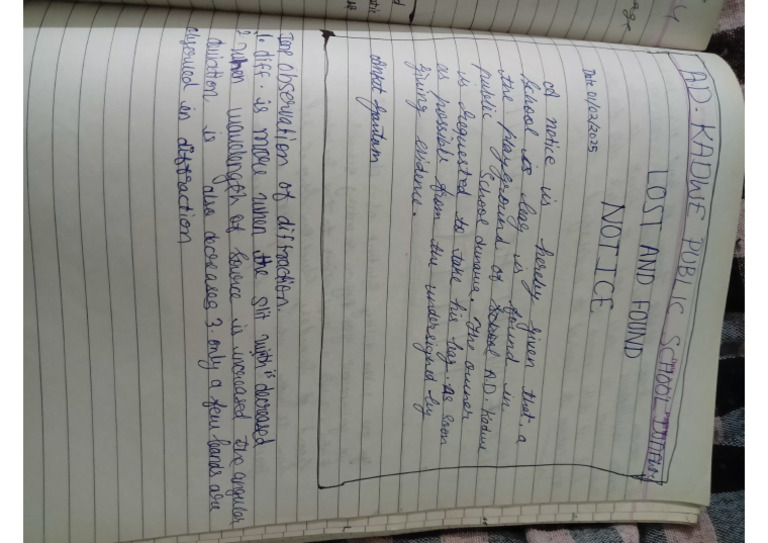 A.D. KADWE PUBLIC SCHOOL
LOST AND FOUND
NOTICE
Date 01/02/2025
A notice is hereby given that a
School is bag is found in
the playground of School A.D. Kadwe
public School dumana. The owner
is requested to take his bag. As soon
as possible from the undersigned by
giving evidence.
Ankit Gautam
observation of diffraction.
1. diff. is more when the slit width is decreased
2. when wavelength of source is increased the angular
diviation is also decreases 3. only a few bands are
observed in diffraction